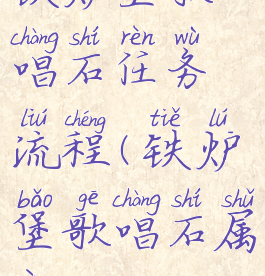 chàng shí rèn wù
唱石任务
liú chéng tiě lú
流程(铁炉
bǎo gē chàng shí shǔ
堡歌唱石属